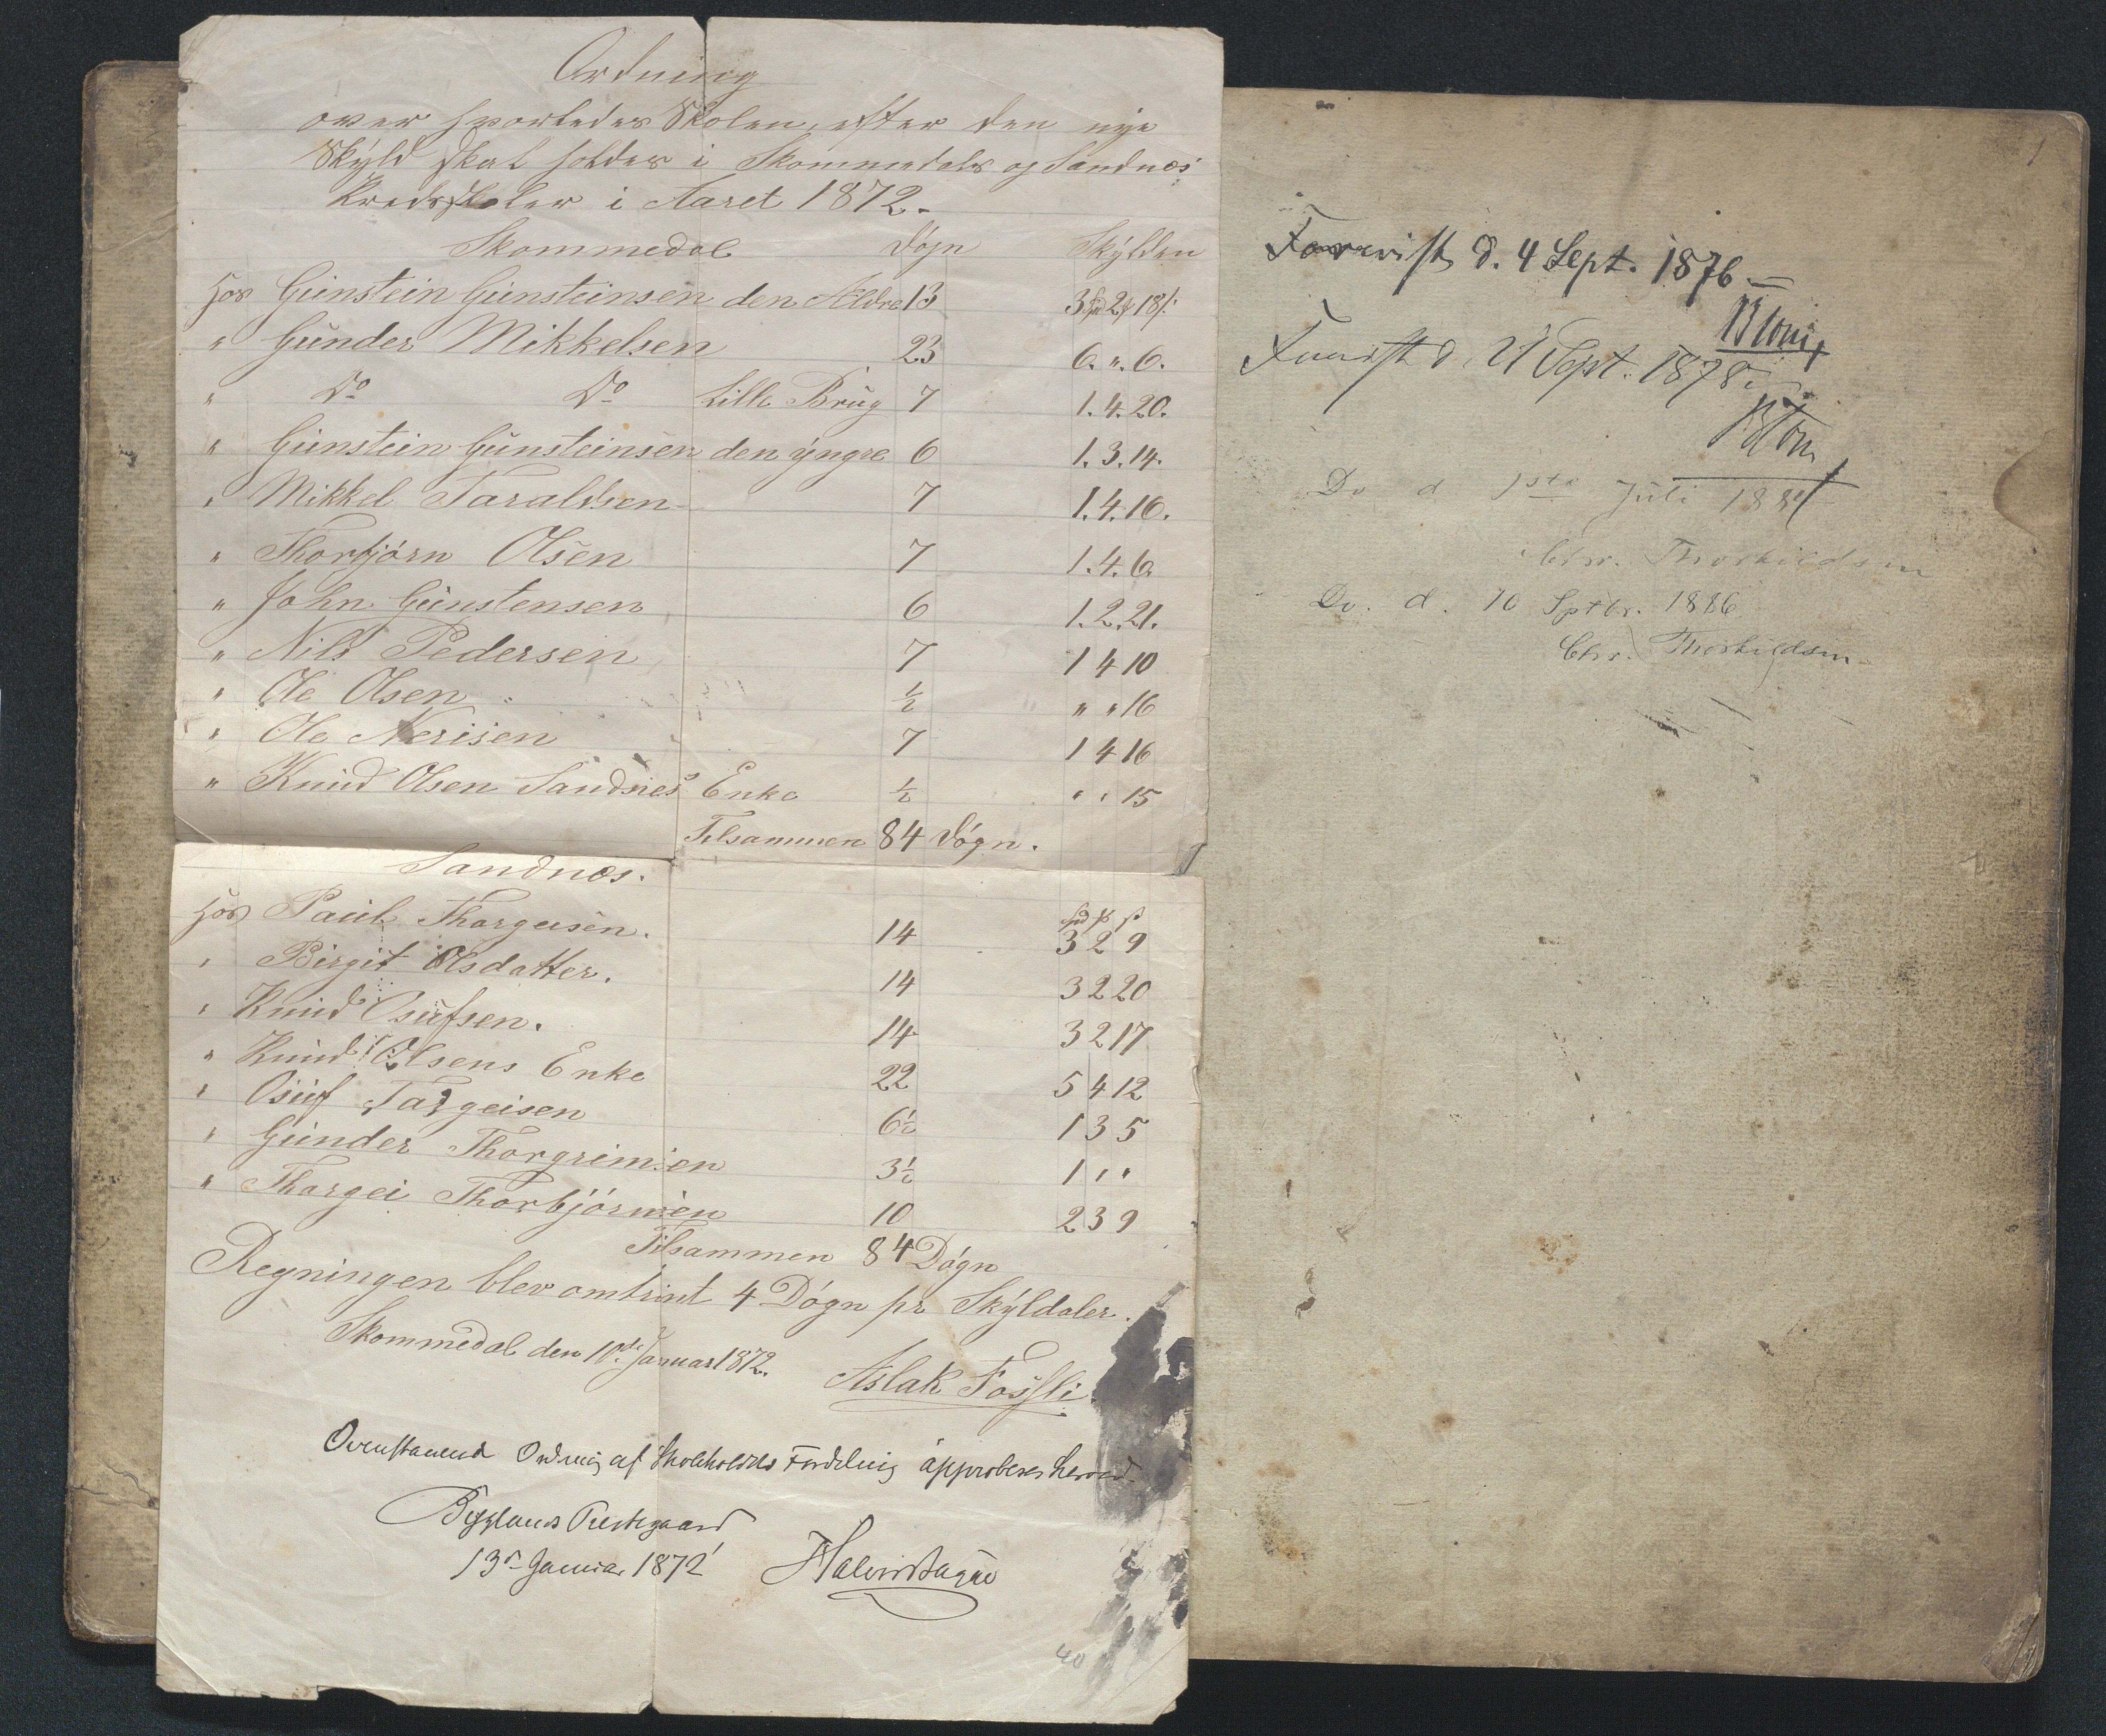 Ordning
over hvorledes Skolen, efter den nye
Skyld skal holdes i Skommedals og Sandnæs
Kredsskoler i Aaret 1872.
Skommedal Døgn Skylden
hos Gunstein Gunsteinsen den Ældre 13 3 Spd 2 # 18 ß.
" Gunder Mikkelsen 23 6. ". 6.
" Do Do Lille Brug 7 1. 4. 20.
" Gunstein Gunsteinsen den yngre 6 1. 3. 14.
" Mikkel Taraldsen 7 1. 4. 16.
" Thorbjørn Olsen 7 1. 4. 6.
" John Gunstensen 6 1. 2. 21.
" Nils Pedersen 7 1 4 10
" Ole Olsen ½ " " 16
" Ole Nerisen 7 1 4 16
" Knud Olsen Sandnes Enke ½ " " 15
Tilsammen 84 Døgn.
Sandnæs.
Spd # ß
hos Paul Thorgeisen. 14 3 2 9
" Birgit Olsdatter. 14 3 2 20
" Knud Osufsen. 14 3 2 17
" Knud Olsens Enke 22 5 4 12
" Osuf Targeisen 6½ 1 3 5
" Gunder Thorgrimsen 3½ 1 " "
" Thorgei Thorbjørnsen 10 2 3 9
Tilsammen 84 Døgn
Regningen blev omtrint 4 Døgn pr Skyldaler.
Skommedal den 10de Januar 1872.
Aslak Fossli
Ovenstaaende Ordning af Skoleholdets Fordeling approberes herved.
Byglands Prestegaard
13de Januar 1872
40
1
Forevist d. 4 Sept. 1876 –
Blom
Forevist d. 21 Sept. 1878.
Blom
Do d 1ste Juli 1884
Chr. Thorkildsen
Do. d. 10 Sptbr. 1886
Chr. Thorkildsen